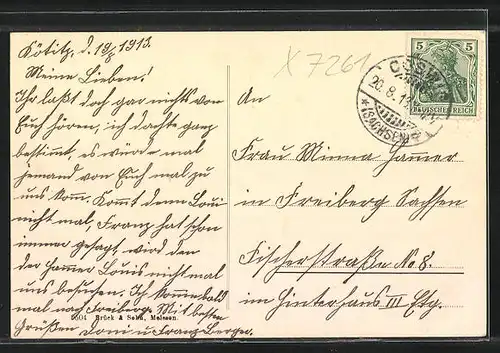 Kötitz, d. 19/8 1913.
Meine Lieben!
Ihr laßt doch gar nichts von
Euch hören, ich dachte ganz
bestimmt, es würde mal
jemand von Euch mal zu
uns komm. Kommt denn Loui
nicht mal, Franz hat schon
immer gesagt, wird den
der Hamer Louis nicht mal
uns besuchen. Ich komme bald
mal nach Freiberg. Mit besten
Grüßen Toni u Franz Berger.
X 7261
5
5
DEUTSCHES REICH
COSSWIG
20.8.13
*(SACHSEN)*
An
Frau Minna Hamer
in Freiberg Sachsen
Fischerstraße No 8.
im Hinterhaus III Etg.
Brück & Sohn, Meissen.